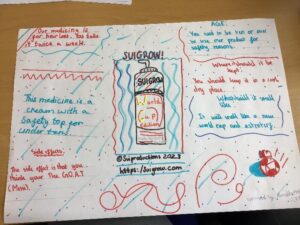 Our medicine is
for hair loss. You take
it twice a week.
This medicine is a
cream with a
Safety top for
under ten!
Side effects
The side effect is that you
think your The G.O.A.T
(Messi).
SUIGROW!
SUIGROW
World
Cup
©Suiproductions 2023
https://Suigrow.com
AGE:
You need to be ten or over
to use our product for
safety reasons.
Where should it be
kept:
You should keep it in a cool
dry place.
What does it smell
like:
It will smell like a new
world cup and astroturf.